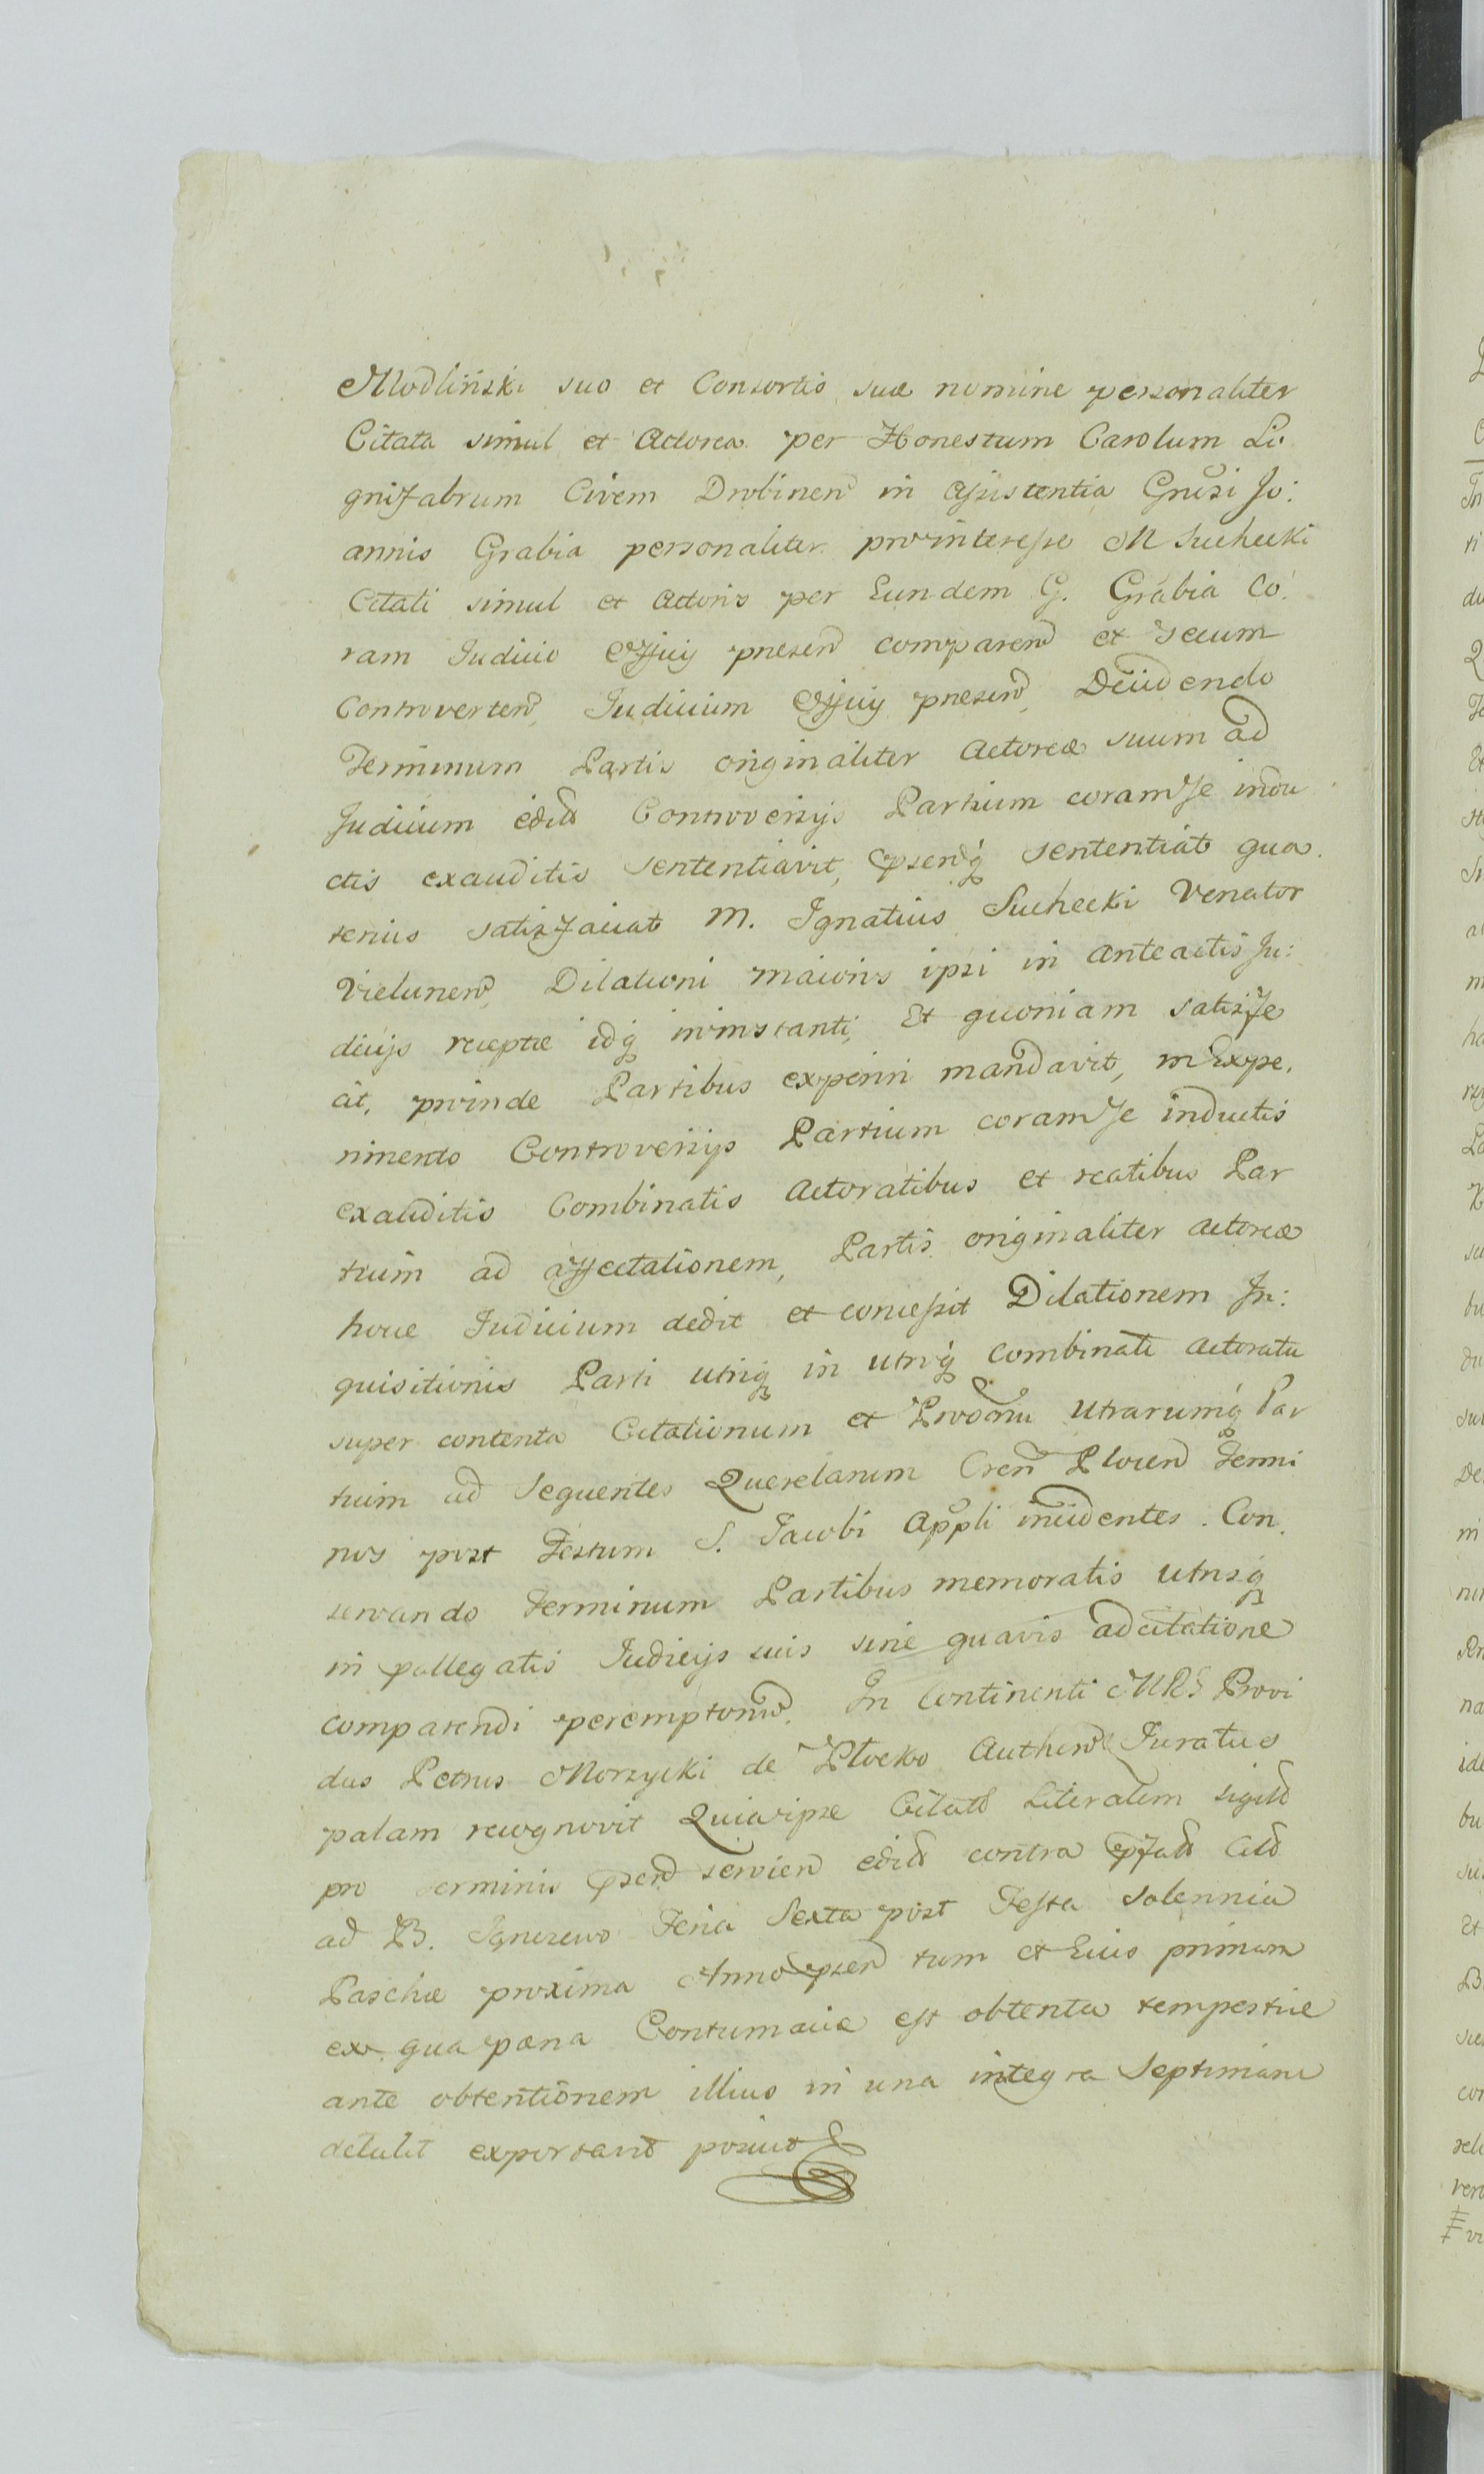 Młodliński suo et Consortis suæ nomine personaliter
Citata simul et Actorea per Honestum Carolum Li
gnifabrum Civem Drobinen in assistentia Gnosi Jo:
annis Grabia personaliter prointeresse M Suchecki
Citati simul et Actoris per Eundem G. Grabia Co:
ram Judicio Officij presen comparen et secum
Controverten, Judicium Officij presen, Decidendo
Terminum Partis originaliter Actoreæ suum ad
Judicium edid Controversijs Partium coram se indu
ctis exauditis sententiavit, psenq sententiat qua
tenus satisfaciat M. Ignatius Suchecki Venator
Vielunen, Dilationi maioris ipsi in anteactis Ju:
dicijs receptæ idq in instanti, Et quoniam satisfe
cit, proinde Partibus experiri mandavit, in Expe.
rimento Controversijs Partium coram se inductis
exauditis Combinatis Actoratibus et reatibus Par
tium ad affectationem, Partis originaliter actoreæ
hocce Judicium dedit et concessit Dilationem In:
quisitionis Parti utriq in utroq combinati actoratu
super contenta Citationum et utrarumq Par
tium ad sequentes Querelarum Cren Plocen Termi
nos post Festum S. Jacobi Appli incidentes. Con.
servando Terminum Partibus memoratis utrisq
in pallegatis Judicijs suis sine quavis adcitatione
comparendi peremptorium. In Continenti MRS Provi
dus Petrus Morzycki de Płocko Authen Juratus
palam recognovit Quia ipse Citatt Literalem sigill
pro terminis psen servien edid contra pfatt Citt
ad B. Feria Sexta post Festa solennia
Paschæ proxima Anno psen tum et Eius primam
ex qua pæna Contumaciæ est obtenta tempestive
ante obtentionem illius in una integra Septimana
detulit exportavit posuit